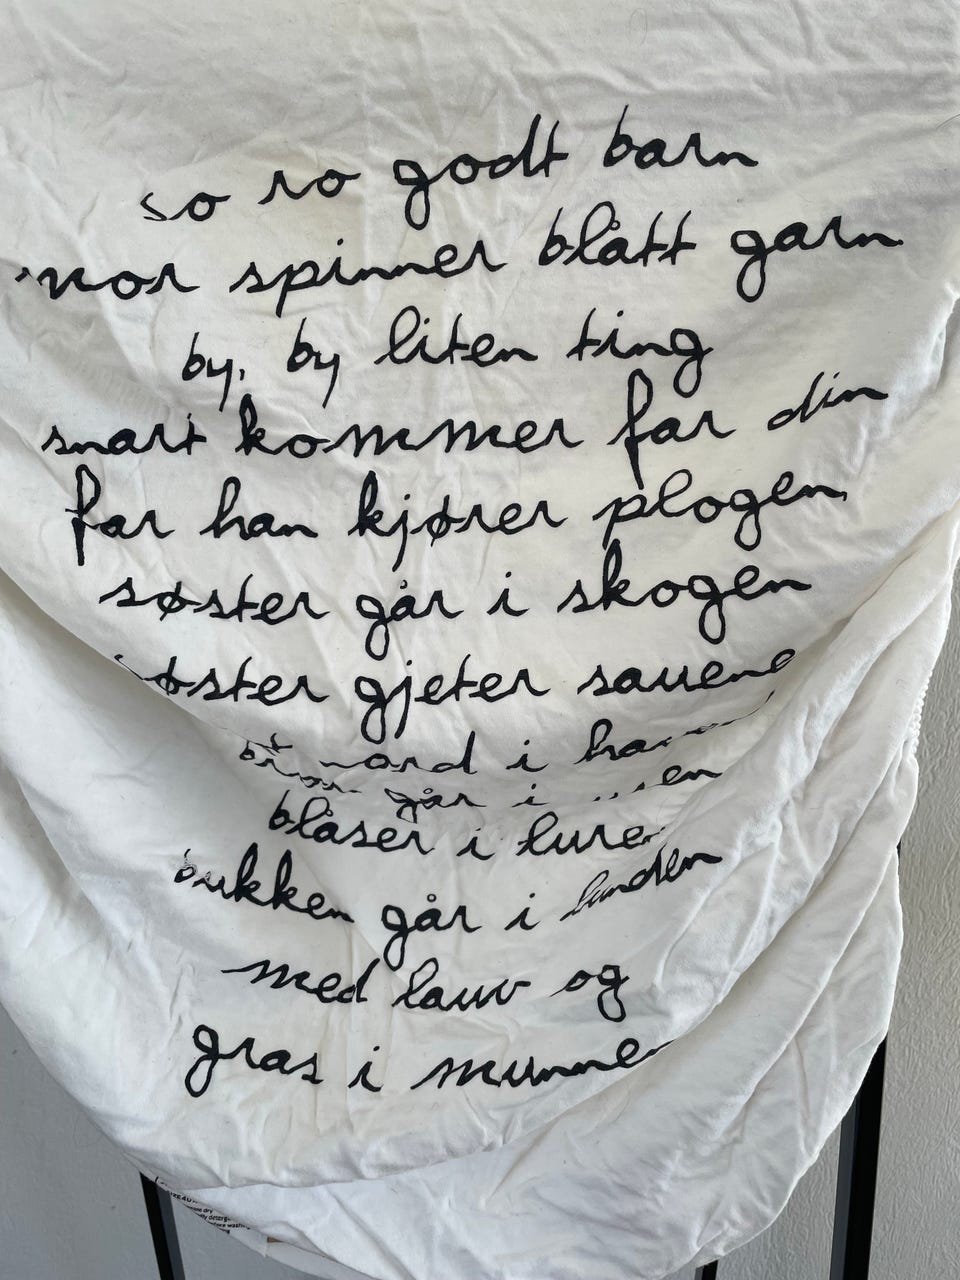 so ro godt barn
mor spinner blått garn
by, by liten ting
snart kommer far din
far han kjører plogen
søster går i skogen
søster gjeter sauene
i
går i
blåser i
bukken går i lunden
med lauv og
gras i munnen